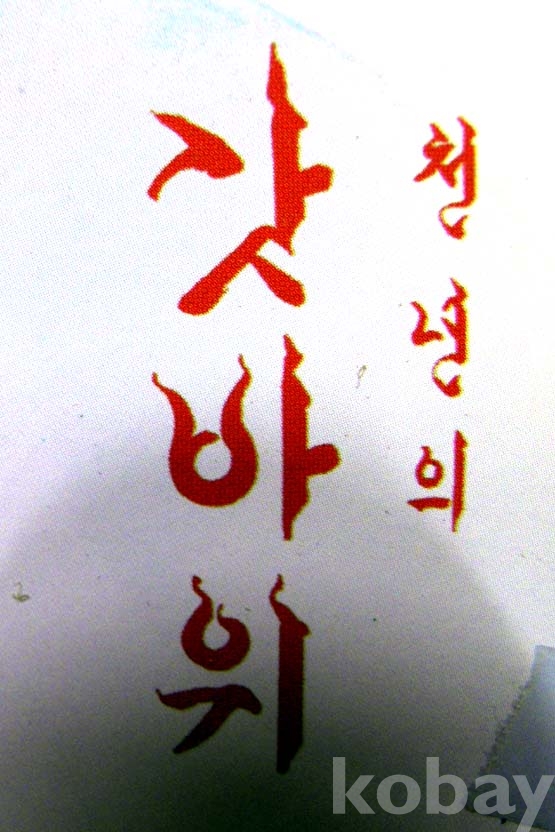 천년의
갓바위
kobay